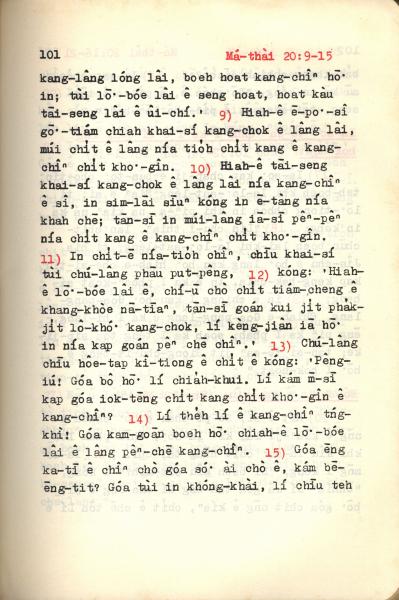 101 Má-thài 20:9-15
kang-lâng lóng lâi, boeh hoat kang-chîⁿ hō͘
in; tùi lō͘-bóe lâi ê seng hoat, hoat kàu
tāi-seng lâi ê ûi-chí.' 9) Hiah-ê ē-po͘-sî
gō͘-tiám chiah khai-sí kang-chok ê lâng lâi,
múi chi̍t ê lâng nía tio̍h chi̍t kang ê kang-
chîⁿ chi̍t kho͘-gîn. 10) Hiah-ê tāi-seng
khai-sí kang-chok ê lâng lâi nía kang-chîⁿ
ê sî, in sim-lāi siūⁿ kóng in ē-tàng nía
khah chē; tān-sī in múi-lâng iā-sī pêⁿ-pêⁿ
nía chi̍t kang ê kang-chîⁿ chi̍t kho͘-gîn.
11) In chi̍t-ē nía-tio̍h chîⁿ, chīu khai-sí
tùi chú-lâng pháu put-pêng, 12) kóng: 'Hiah-
ê lō͘-bóe lâi ê, chí-ū chò chi̍t tiám-cheng ê
khang-khòe nā-tīaⁿ, tàn-sī goán kui ji̍t pha̍k-
ji̍t ló-khó͘ kang-chok, lí kèng-jiân iā hō͘
in nía kap goán pêⁿ chē chîⁿ.' 13) Chú-lâng
chīu hôe-tap kî-tiong ê chi̍t ê kóng: 'Pêng-
iú! Góa bô hō͘ lí chia̍h-khui. Lí kám m̄-sī
kap góa iok-tēng chi̍t kang chi̍t kho͘-gîn ê
kang-chîⁿ? 14) Lí the̍h lí ê kang-chîⁿ tńg-
khì! Góa kam-goān boeh hō͘ chiah-ê lō͘-bóe
lâi ê lâng pêⁿ-chē kang-chîⁿ. 15) Góa ēng
ka-tī ê chîⁿ chò góa só͘ ài chò ê, kám bē-
ēng-tit? Góa tùi in khóng-khài, lí chīu teh